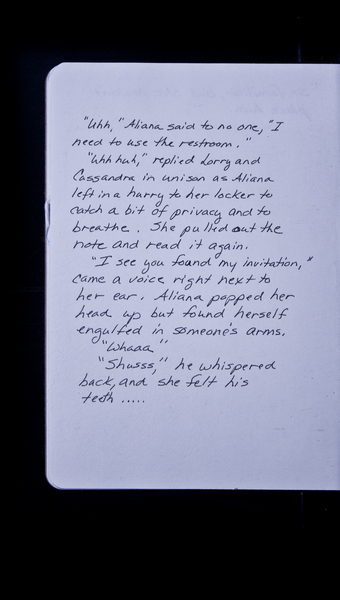 "Uhh," Aliana said to no one, "I
need to use the restroom."
"Uhh huh," replied Lorry and
Cassandra in unison as Aliana
left in a harry to her locker to
catch a bit of privacy and to
breathe. She pulled out the
note and read it again.
"I see you found my invitation,"
came a voice right next to
her ear. Aliana popped her
head up but found herself
engulfed in someone's arms.
"Whaaa"
"Shusss," he whispered
back, and she felt his
teeth .....